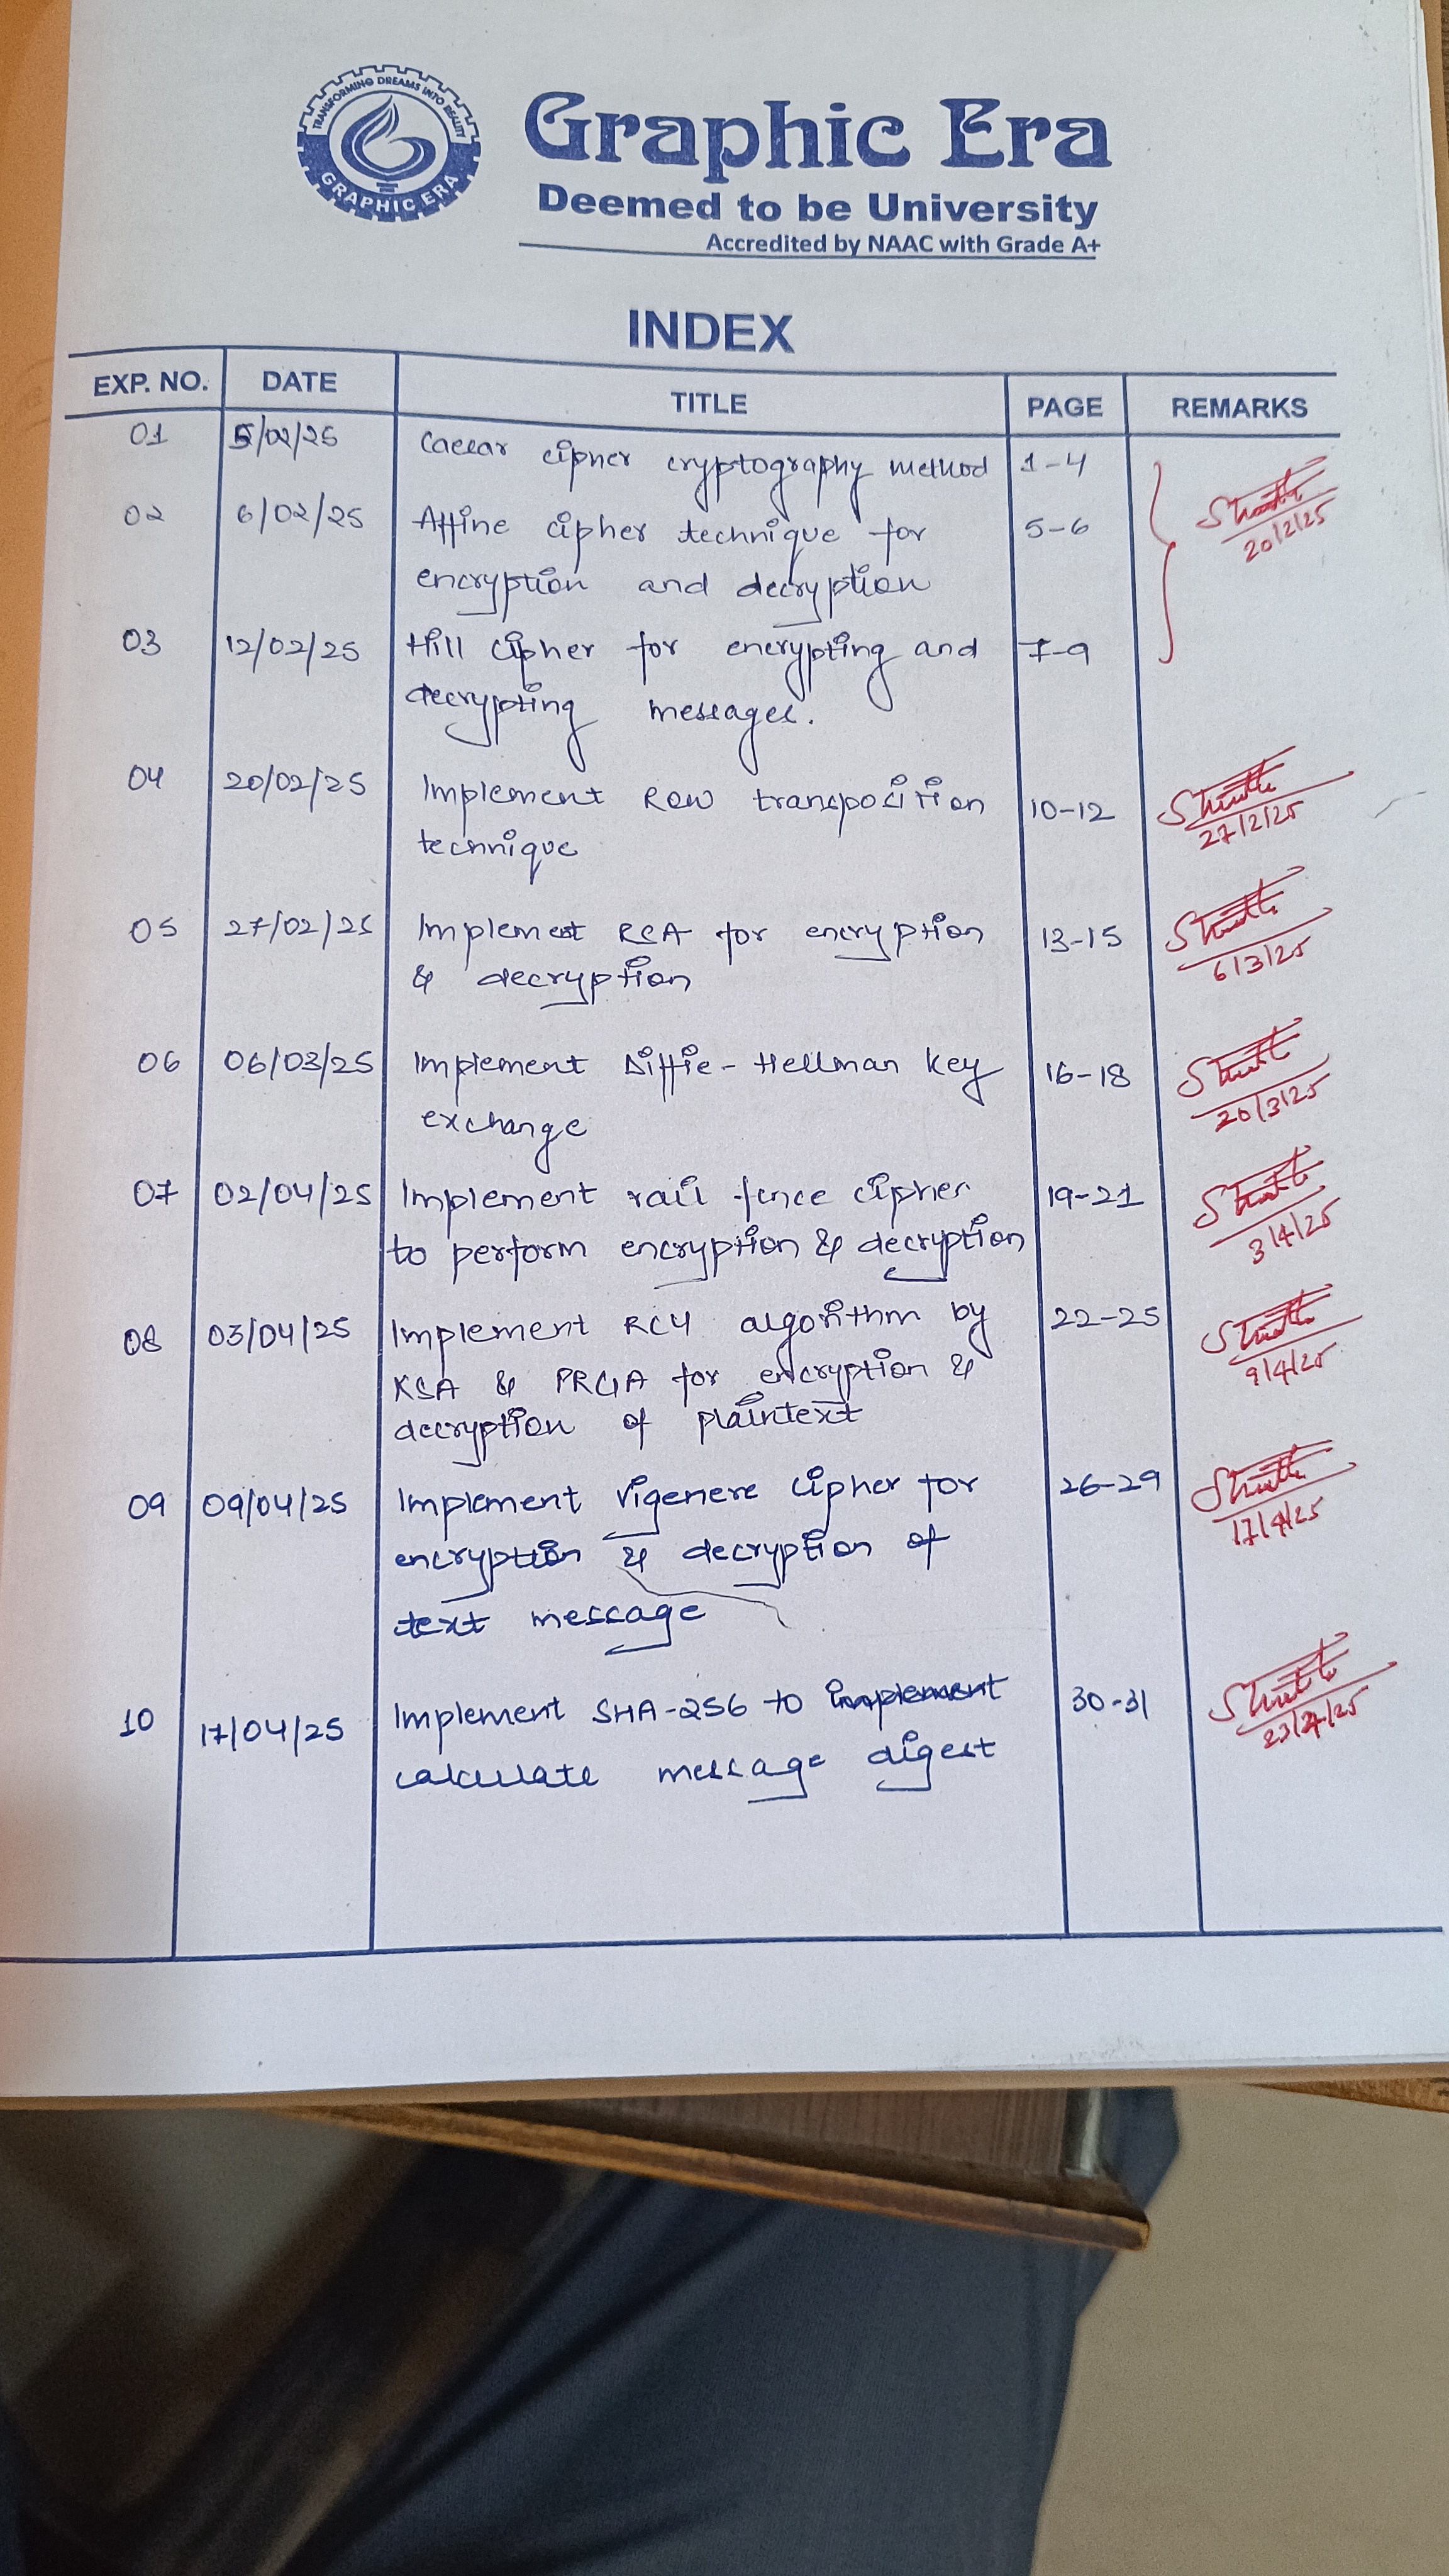 TRANSFORMING DREAMS INTO REALITY
GRAPHIC ERA
Graphic Era
Deemed to be University
Accredited by NAAC with Grade A+
INDEX
EXP. NO. DATE TITLE PAGE REMARKS
01 5/02/25 Caesar cipher cryptography method 1-4
20/2/25
02 6/02/25 Affine cipher technique for 5-6
encryption and decryption
03 12/02/25 Hill cipher for encrypting and 7-9
decrypting messages.
04 20/02/25 Implement Row transposition 10-12
technique
27/2/25
05 27/02/25 Implement RSA for encryption 13-15
& decryption
6/3/25
06 06/03/25 Implement Diffie-Hellman key 16-18
exchange
20/3/25
07 02/04/25 Implement rail fence cipher 19-21
to perform encryption & decryption
3/4/25
08 03/04/25 Implement RC4 algorithm by 22-25
KSA & PRGA for encryption &
decryption of plaintext
9/4/25
09 09/04/25 Implement Vigenere cipher for 26-29
encryption & decryption of
text message
17/4/25
10 17/04/25 Implement SHA-256 to implement 30-31
calculate message digest
23/4/25